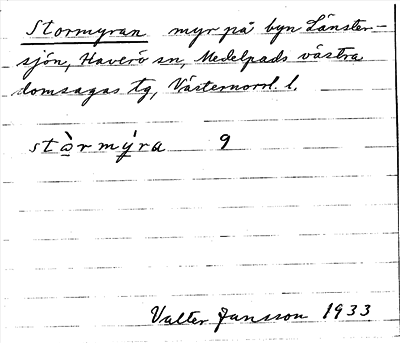 Stormyran myr på byn Länster-
sjön, Haverö sn, Medelpads västra
domsagas tg, Västernorrl. l.
stɷ̀rmy̌ra 9
Valter Jansson 1933